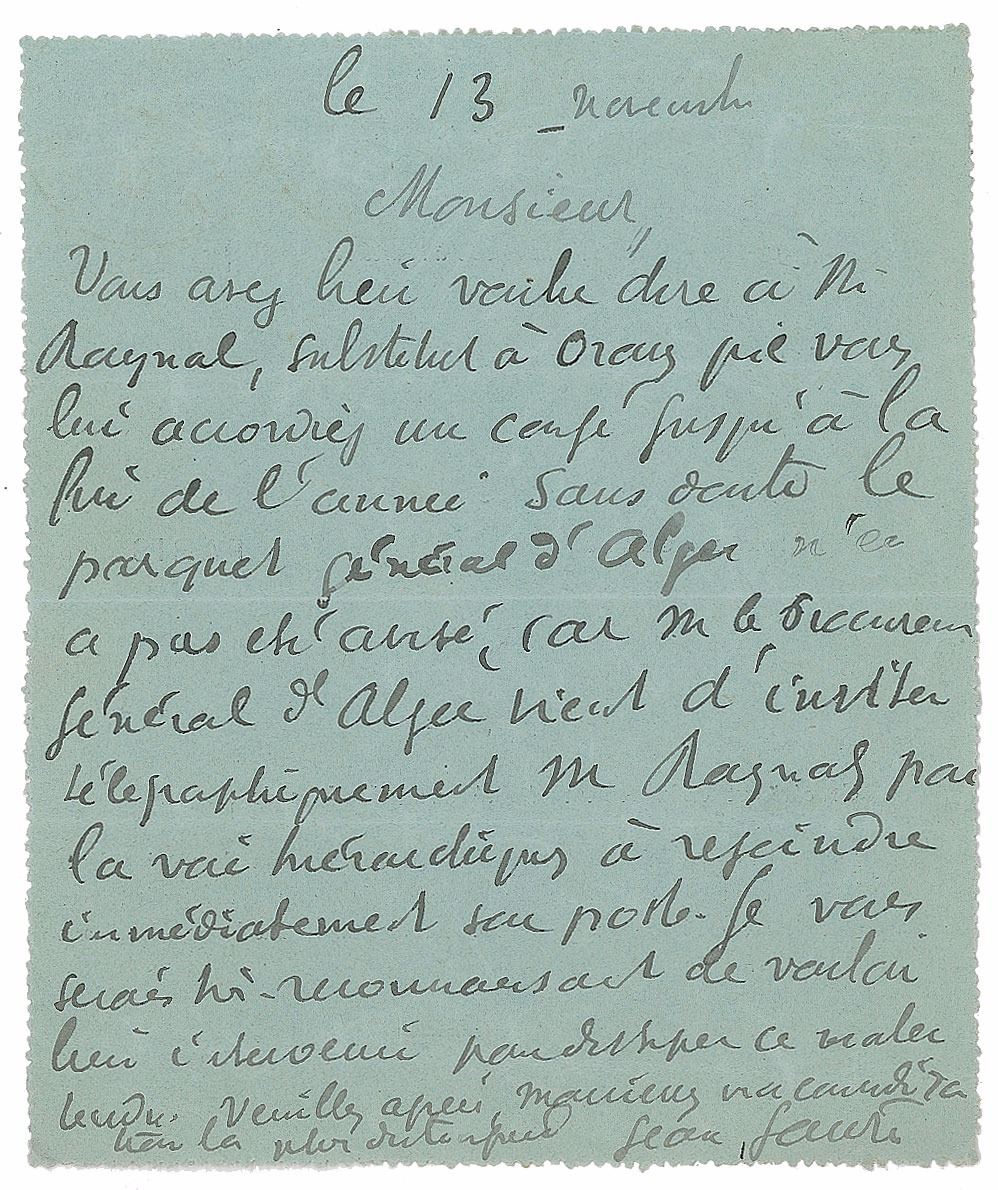 le 13 novembre
Monsieur,
Vous avez bien voulu dire à M
Raynal, substitut à Oran que vous
lui accordiez un congé jusqu'à la
fin de l'année. Sans doute le
parquet général d'Alger n'en
a pas été avisé, car M le Procureur
général d'Alger vient d'inviter
télégraphiquement M Raynal par
la voie hiérarchique à rejoindre
immédiatement son poste. Je vous
serais très reconnaissant de vouloir
bien intervenir pour dissiper ce malen
tendu. Veuillez agréer, Monsieur ma considéra
tion la plus distinguée Jean Jaurès